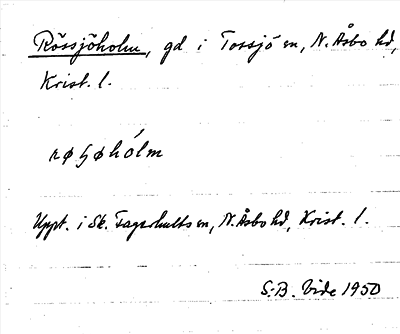 Rössjöholm, gd i Tossjö sn, N. Åsbo hd,
Krist. l.
Uppt. i Sk. Fagerhults sn, N. Åsbo hd, Krist. l.
S.-B. Vide 1950